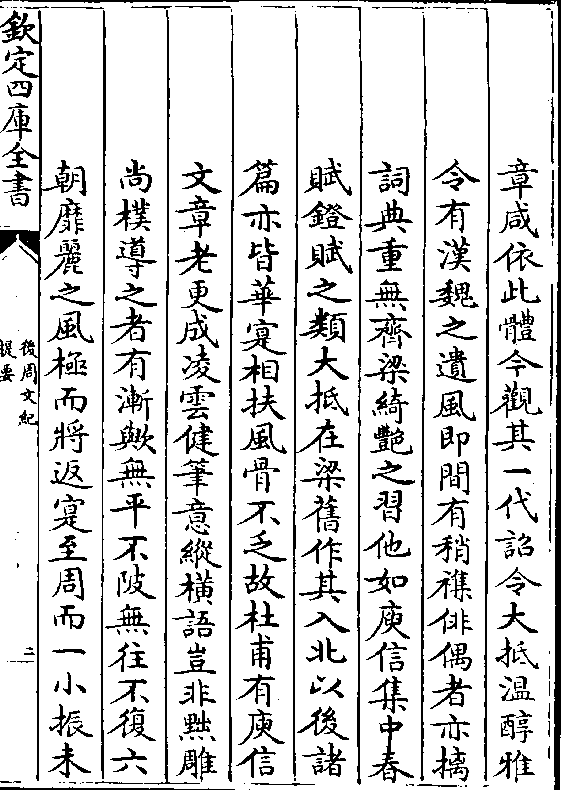 章咸依此體今觀其一代詔令大抵温醇雅
令有漢魏之遺風即間有稍襍俳偶者亦摛
詞典重無齊梁綺艶之習他如庾信集中春
賦鐙賦之類大抵在梁舊作其入北以後諸
篇亦皆華寔相扶風骨不乏故杜甫有庾信
文章老更成凌雲健筆意縱横語豈非黜雕
尚樸導之者有漸歟無平不陂無往不復六
朝靡麗之風極而將返寔至周而一小振未
欽定四庫全書
後周文紀
提要
二